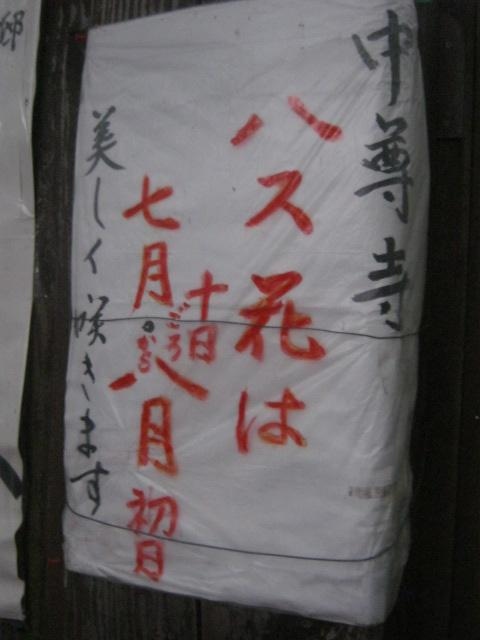 中尊寺
ハス花は
十日ごろ
七月。から八月初日
美しく咲きます
邸